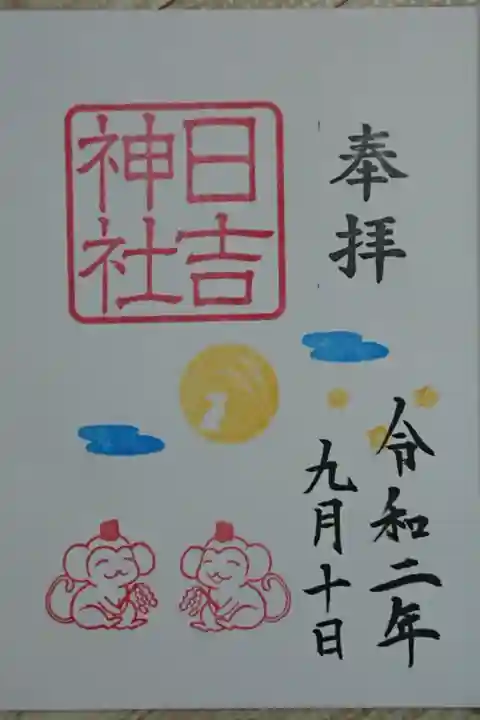 奉拝
令和二年
九月十日
日吉
神社